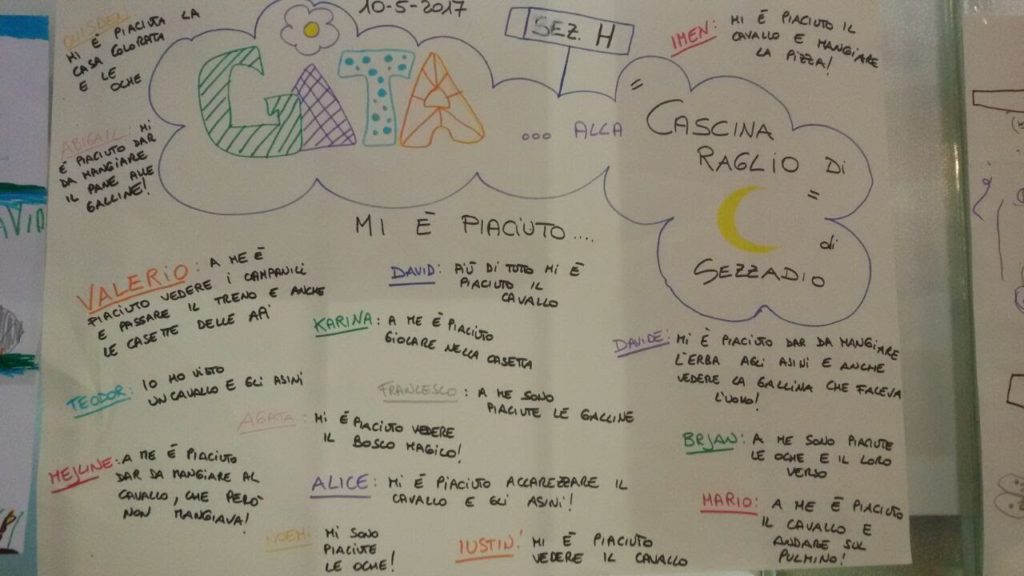 10-5-2017
SEZ. H
GITA
... ALLA
"CASCINA
RAGLIO DI
=
di
SEZZADIO
MI È PIACIUTA LA
CASA COLORATA
E LE
OCHE
IMEN: MI È PIACIUTO IL
CAVALLO E MANGIARE
LA PIZZA!
ABIGAIL: MI
È PIACIUTO DAR
DA MANGIARE
IL PANE ALLE
GALLINE!
MI È PIACIUTO....
VALERIO: A ME È
PIACIUTO VEDERE I CAMPANILI
E PASSARE IL TRENO E ANCHE
LE CASETTE DELLE API
DAVID: PIÙ DI TUTTO MI È
PIACIUTO IL
CAVALLO
KARINA: A ME È PIACIUTO
GIOCARE NELLA CASETTA
DAVIDE: MI È PIACIUTO DAR DA MANGIARE
L'ERBA AGLI ASINI E ANCHE
VEDERE LA GALLINA CHE FACEVA
L'UOVO!
TEODOR: IO HO VISTO
UN CAVALLO E GLI ASINI
FRANCESCO: A ME SONO
PIACIUTE LE GALLINE
AGATA: MI È PIACIUTO VEDERE
IL BOSCO MAGICO!
BRJAN: A ME SONO PIACIUTE
LE OCHE E IL LORO
VERSO
MEJLINE: A ME È PIACIUTO
DAR DA MANGIARE AL
CAVALLO, CHE PERÒ
NON MANGIAVA!
ALICE: MI È PIACIUTO ACCAREZZARE IL
CAVALLO E GLI ASINI!
MARIO: A ME È PIACIUTO
IL CAVALLO E
ANDARE SUL
PULMINO!
NOEMI: MI SONO
PIACIUTE
LE OCHE!
IUSTIN: MI È PIACIUTO
VEDERE IL CAVALLO